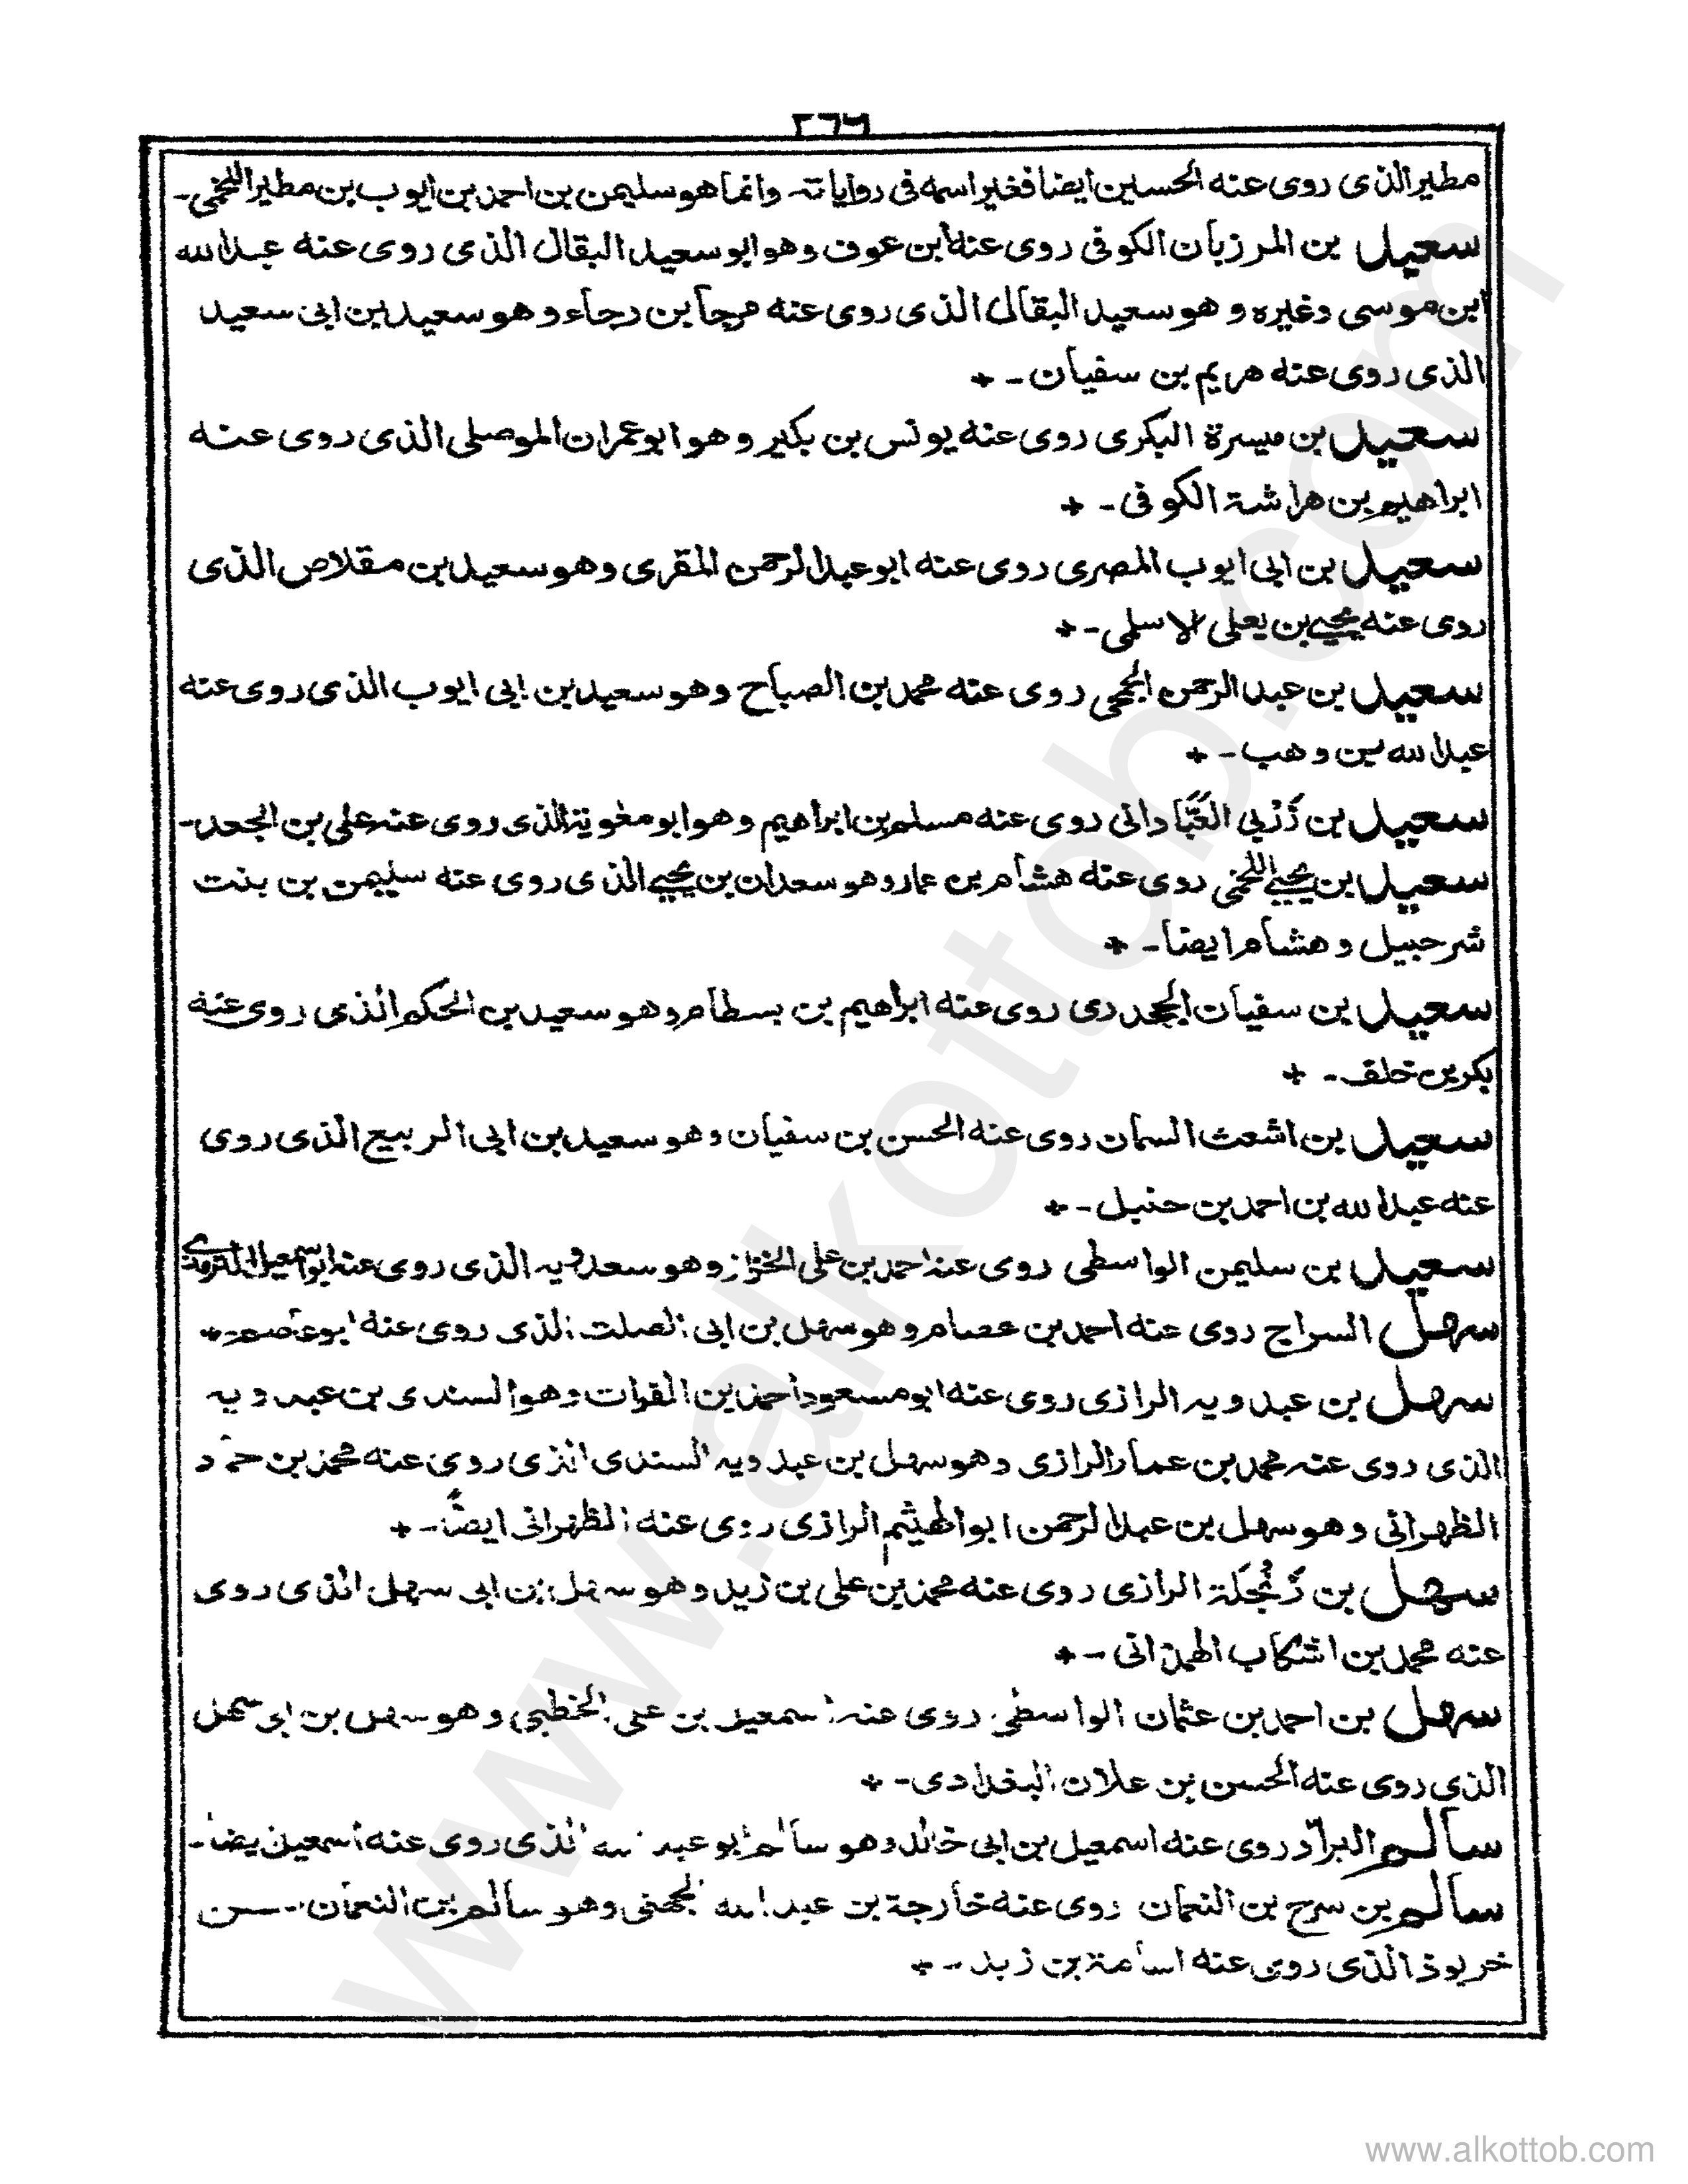 ٢٦٦
مطير الذى روى عنه الحسين ايضا فغير اسمه فى رواياته وانما هو سليمن بن احمد بن ايوب بن مطير اللخمى -
سعيد بن المرزبان الكوفى روى عنه ابن عوف وهو ابو سعيد البقال الذى روى عنه عبد الله
ابن موسى وغيره وهو سعيد البقال الذى روى عنه مرجأ بن رجاء وهو سعيد بن ابى سعيد
الذى روى عنه هريم بن سفيان - +
سعيد بن ميسرة البكرى روى عنه يونس بن بكير وهو ابو عمران الموصلى الذى روى عنه
ابراهيم بن هراشة الكوفى - +
سعيد بن ابى ايوب المصرى روى عنه ابو عبد الرحمن المقرى وهو سعيد بن مقلاص الذى
روى عنه يحيى بن يعلى الاسلمى - +
سعيد بن عبد الرحمن الجمحى روى عنه محمد بن الصباح وهو سعيد بن ابى ايوب الذى روى عنه
عبد الله بن وهب - +
سعيد بن زَرْبى العَبَّادانى روى عنه مسلم بن ابراهيم وهو ابو معوية الذى روى عنه على بن الجعد -
سعيد بن يحيى اللخمى روى عنه هشام بن عمار وهو سعدان بن يحيى الذى روى عنه سليمن بن بنت
شرحبيل وهشام ايضا - +
سعيد بن سفيان الجحدرى روى عنه ابراهيم بن بسطام وهو سعيد بن الحكم الذى روى عنه
بكر بن خلف - +
سعيد بن اشعث السمان روى عنه الحسن بن سفيان وهو سعيد بن ابى الربيع الذى روى
عنه عبد الله بن احمد بن حنبل - +
سعيد بن سليمن الواسطى روى عنه احمد بن على الخزاز وهو سعدويه الذى روى عنه ابو اسمعيل الترمذى
سهل السراج روى عنه احمد بن عصام وهو سهل بن ابى الصلت الذى روى عنه ابو عاصم - +
سهل بن عبدويه الرازى روى عنه ابو مسعود احمد بن الفرات وهو السندى بن عبدويه
الذى روى عنه محمد بن عمار الرازى وهو سهل بن عبدويه السندى الذى روى عنه محمد بن حماد
الظهرانى وهو سهل بن عبد الرحمن ابو الهيثم الرازى روى عنه الظهرانى ايضًا - +
سهل بن زَنْجَلة الرازى روى عنه محمد بن على بن زيد وهو سهل بن ابى سهل الذى روى
عنه محمد بن اشكاب الهمدانى - +
سهل بن احمد بن عثمان الواسطى روى عنه اسمعيل بن على الخطبى وهو سهل بن ابى سهل
الذى روى عنه الحسن بن علان البغدادى - +
سالم البرّاد روى عنه اسمعيل بن ابى خالد وهو سالم ابو عبد الله الذى روى عنه اسمعيل ايضا -
سالم بن سرج بن النعمان روى عنه خارجة بن عبد الله الجهنى وهو سالم بن النعمان بن
خربوذ الذى روى عنه اسامة بن زيد - +
www.alkottob.com
www.alkottob.com